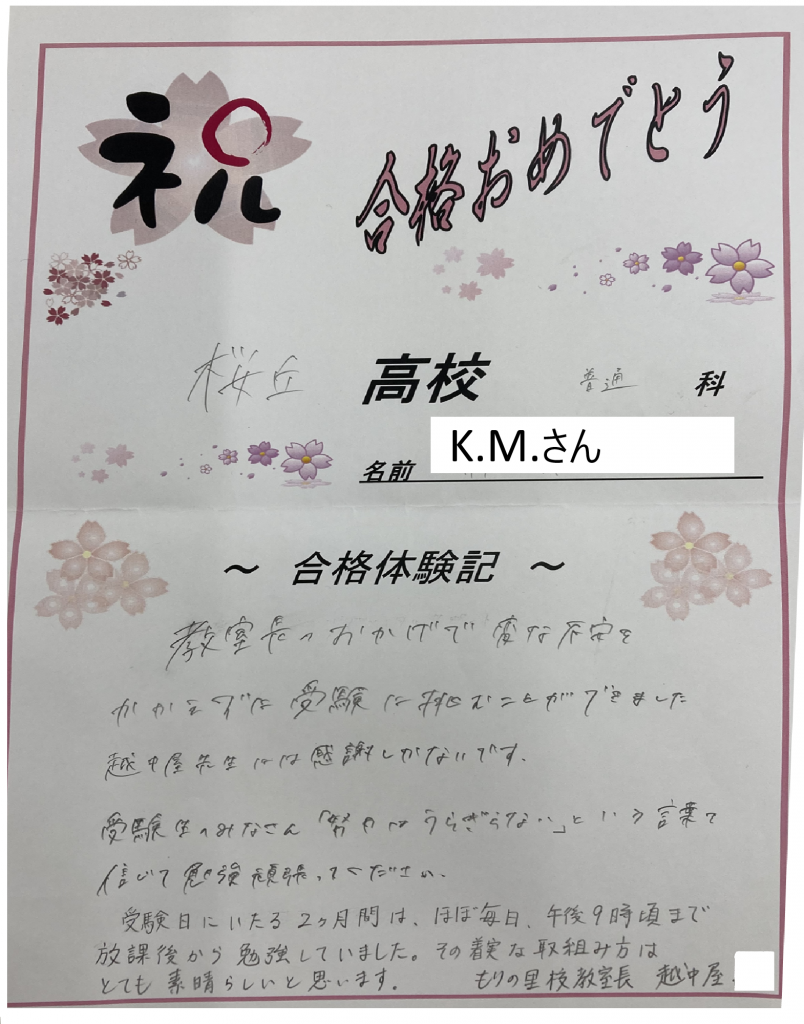 祝 合格おめでとう
桜丘 高校 普通 科
名前 K.M.さん
～ 合格体験記 ～
教室長のおかげで変な不安を
かかえずに受験に挑むことができました
越中屋先生には感謝しかないです.
受験生のみなさん「努力はうらぎらない」という言葉を
信じて勉強頑張ってください.
受験日にいたる2ヶ月間は、ほぼ毎日、午後9時頃まで
放課後から勉強していました。その着実な取組み方は
とても素晴らしいと思います. もりの里校教室長 越中屋.